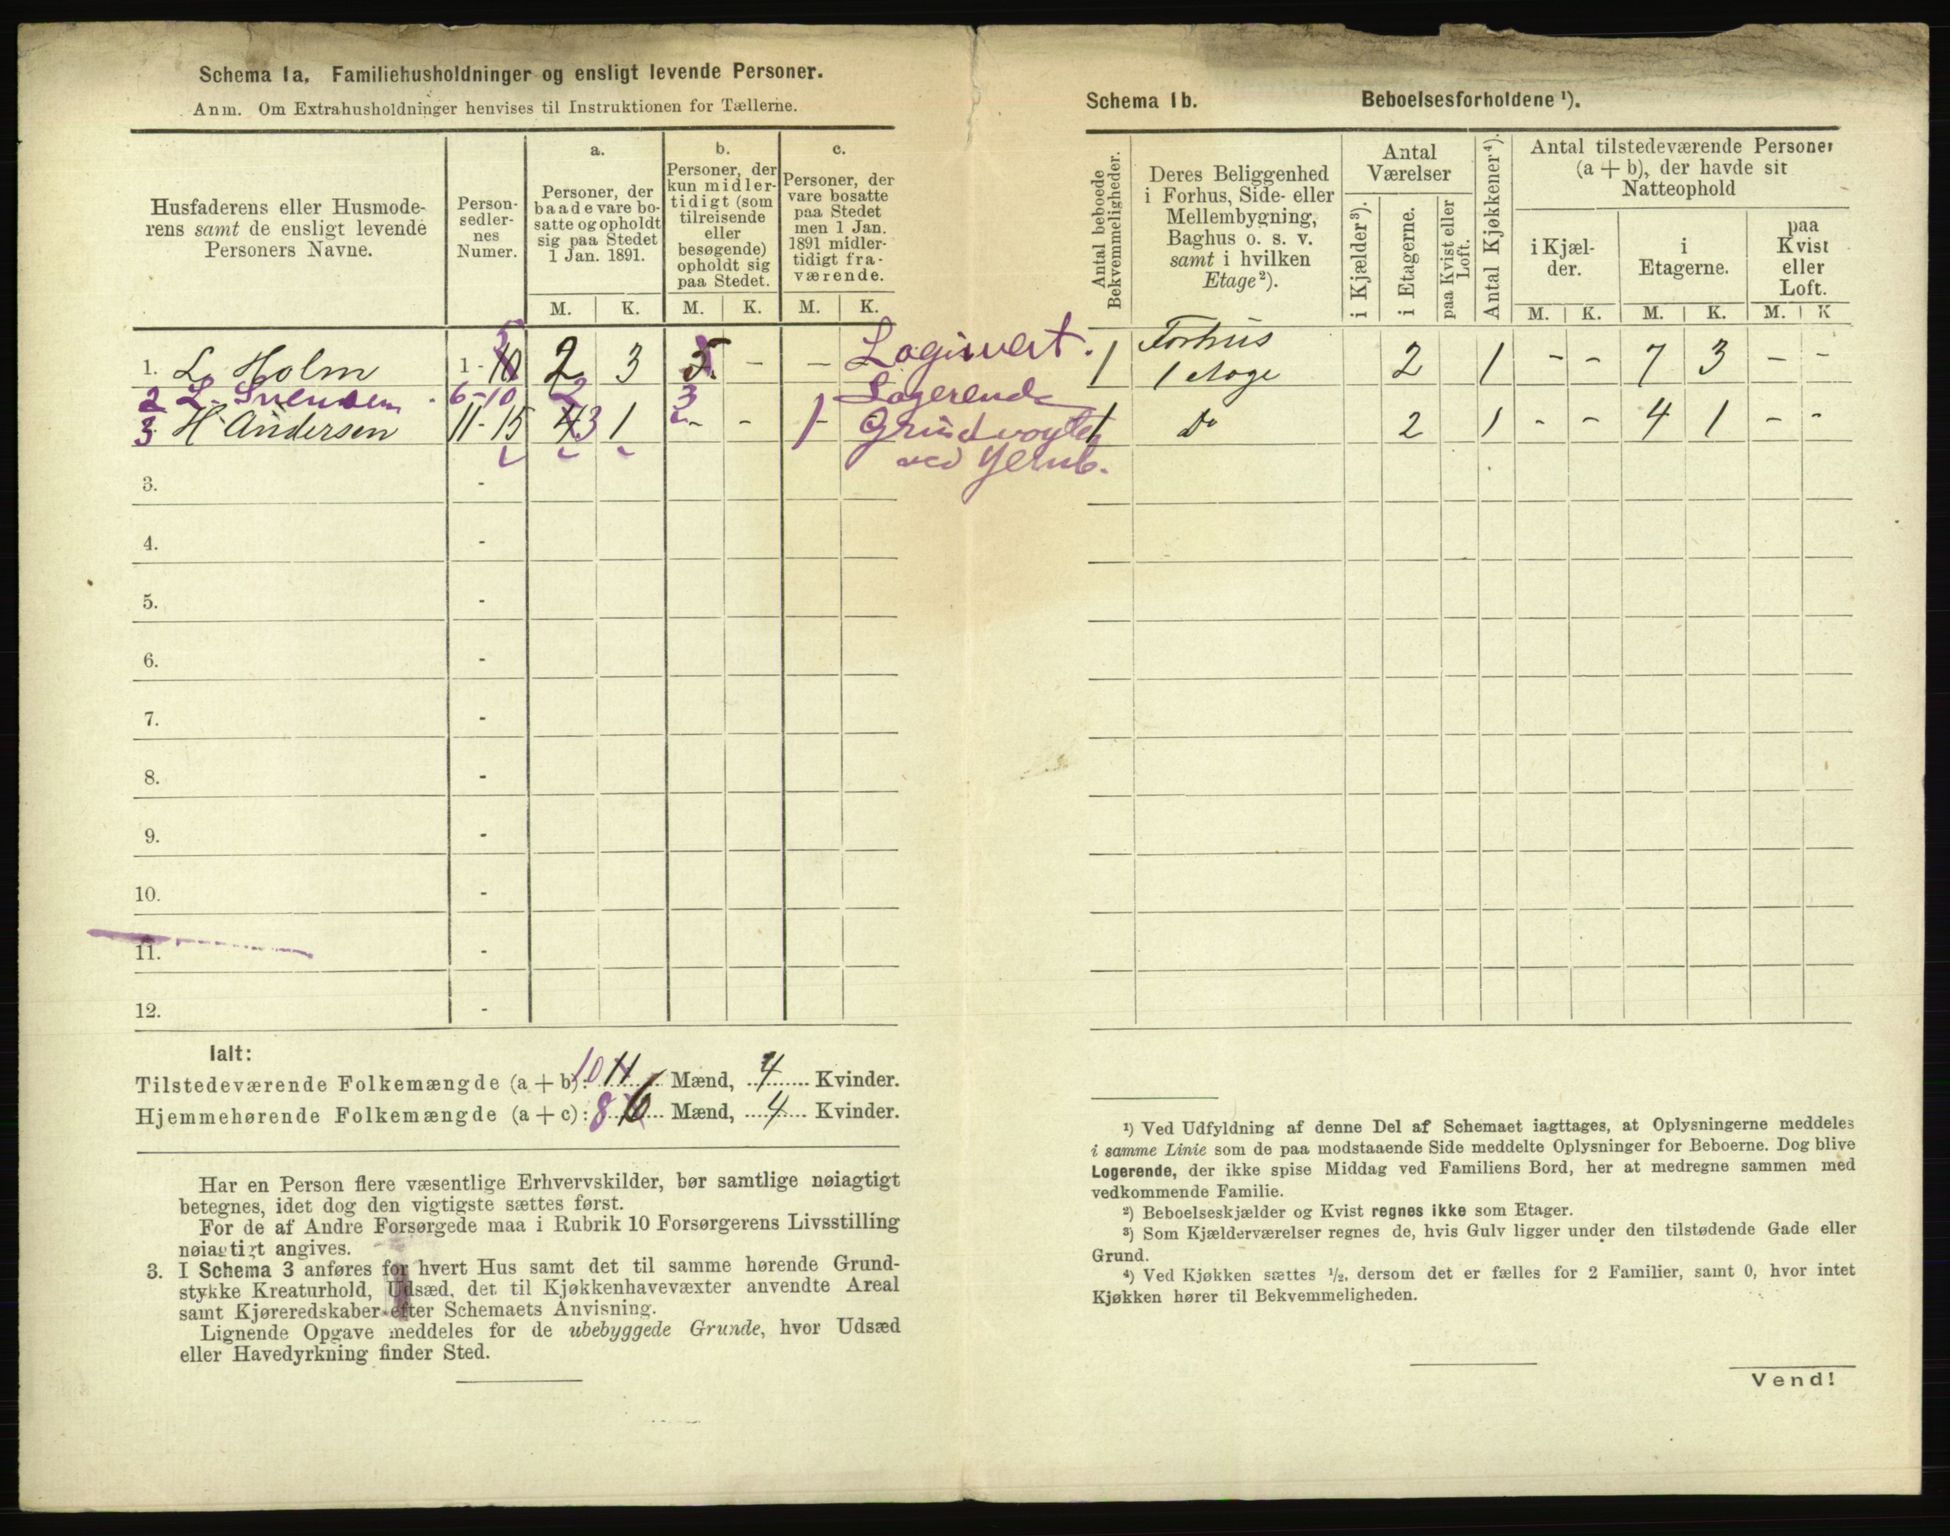 Schema 1a. Familiehusholdninger og ensligt levende Personer.
Anm. Om Extrahusholdninger henvises til Instruktionen for Tællerne.
Husfaderens eller Husmode-
rens samt de ensligt levende
Personers Navne.
Person-
sedler-
nes
Numer.
a.
Personer, der
baade vare bo-
satte og opholdt
sig paa Stedet
1 Jan. 1891.
M. K.
b.
Personer, der
kun midler-
tidigt (som
tilreisende
eller
besøgende)
opholdt sig
paa Stedet.
M. K.
c.
Personer, der
vare bosatte
paa Stedet
men 1 Jan.
1891 midler-
tidigt fra-
værende.
M. K.
1. L. Holm 1 - 10 2 3 5 - - Logisvert.
2 L. Svensen 6-10 2 3 Logerende
3 H Andersen 11-15 4 3 1 - - 1 - Grundvogter
ved Jernb.
3. -
4. -
5. -
6. -
7. -
8. -
9. -
10. -
11. -
12. -
Ialt:
Tilstedeværende Folkemængde (a + b): 10 11 Mænd, 4 Kvinder.
Hjemmehørende Folkemængde (a + c): 8 6 Mænd, 4 Kvinder.
Har en Person flere væsentlige Erhvervskilder, bør samtlige nøiagtigt
betegnes, idet dog den vigtigste sættes først.
For de af Andre Forsørgede maa i Rubrik 10 Forsørgerens Livsstilling
nøiagtigt angives.
3. I Schema 3 anføres for hvert Hus samt det til samme hørende Grund-
stykke Kreaturhold, Udsæd, det til Kjøkkenhavevæxter anvendte Areal
samt Kjøreredskaber efter Schemaets Anvisning.
Lignende Opgave meddeles for de ubebyggede Grunde, hvor Udsæd
eller Havedyrkning finder Sted.
Schema 1b. Beboelsesforholdene ¹).
Antal beboede
Bekvemmeligheder.
Deres Beliggenhed
i Forhus, Side- eller
Mellembygning,
Baghus o. s. v.
samt i hvilken
Etage ²).
Antal
Værelser
i Kjælder ³).
i Etagerne.
paa Kvist eller
Loft.
Antal Kjøkkener ⁴).
Antal tilstedeværende Personer
(a + b), der havde sit
Natteophold
i Kjæl-
der.
M. K.
i
Etagerne.
M. K.
paa
Kvist
eller
Loft.
M. K
1 Forhus
1 Etage 2 1 - - 7 3 - -
1 Do 2 1 - - 4 1 - -
¹) Ved Udfyldning af denne Del af Schemaet iagttages, at Oplysningerne meddeles
i samme Linie som de paa modstaaende Side meddelte Oplysninger for Beboerne. Dog blive
Logerende, der ikke spise Middag ved Familiens Bord, her at medregne sammen med
vedkommende Familie.
²) Beboelseskjælder og Kvist regnes ikke som Etager.
³) Som Kjælderværelser regnes de, hvis Gulv ligger under den tilstødende Gade eller
Grund.
⁴) Ved Kjøkken sættes ½, dersom det er fælles for 2 Familier, samt 0, hvor intet
Kjøkken hører til Bekvemmeligheden.
Vend!